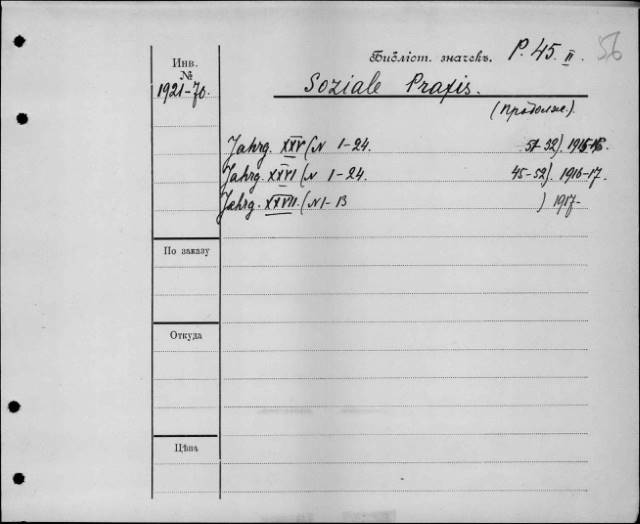 Инв.
№
1921-70.
Библіот. значекъ. P. 45 II. 56
Soziale Praxis.
(Продолж.).
Jahrg. XXV (N 1-24. 51-52). 1915-16.
Jahrg. XXVI (N 1-24. 45-52). 1916-17.
Jahrg. XXVII. (N 1-13 ) 1917-
По заказу
Откуда
Цѣна